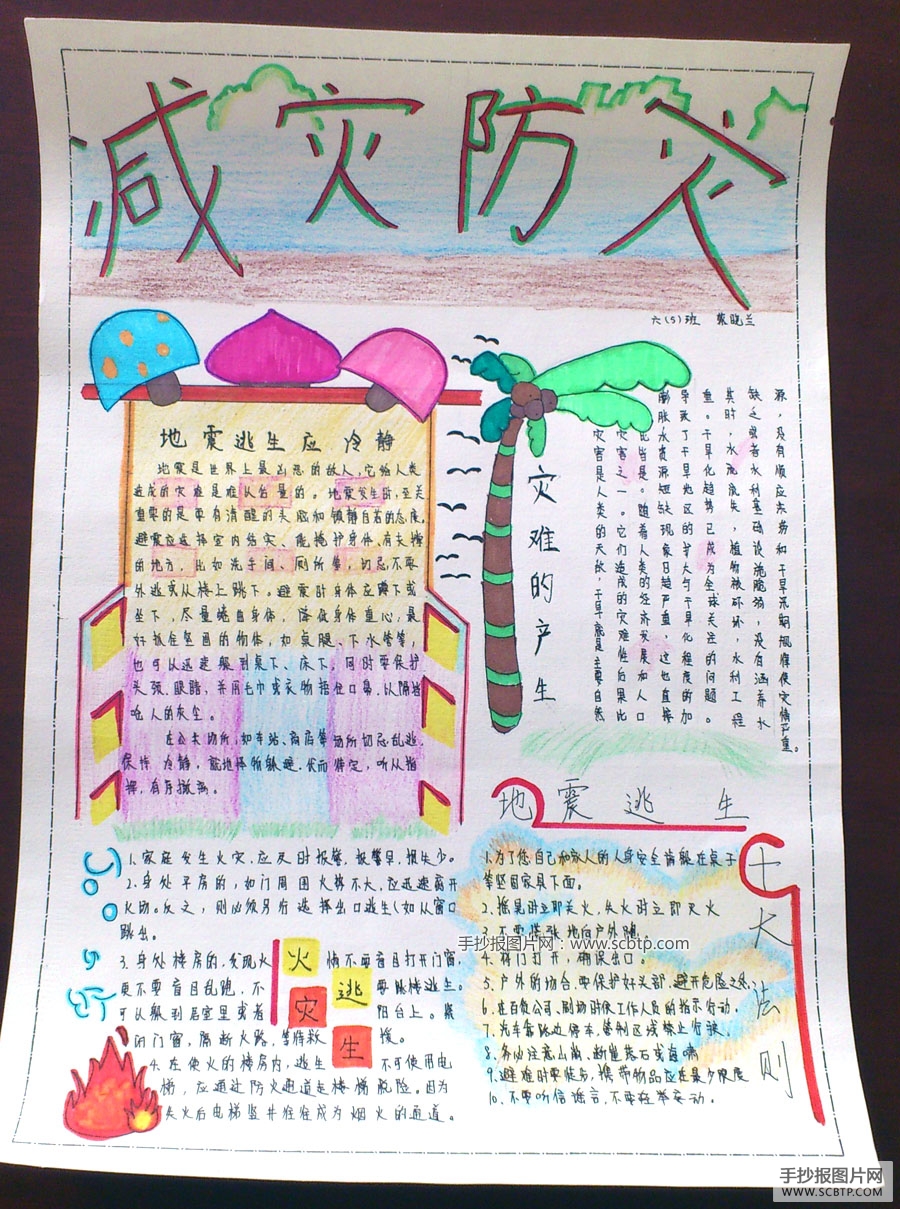 减灾防灾
六(5)班 蔡晓兰
地震逃生应冷静
地震是世界上最凶恶的敌人,它给人类
造成的灾难是难以估量的。地震发生时,至关
重要的是要有清醒的头脑和镇静自若的态度。
避震应选择室内结实、能掩护身体、有支撑
的地方,比如洗手间、厕所等,切忌不要
外逃或从楼上跳下。避震时身体应蹲下或
坐下,尽量蜷曲身体,降低身体重心,最
好抓住坚固的物体,如桌腿、下水管等,
也可以迅速躲到桌下、床下。同时要保护
头颈、眼睛,并用毛巾或衣物捂住口鼻,以隔挡
呛人的灰尘。
在公共场所,如车站、商店等场所切忌乱逃,
保持冷静,就地择物躲避,伏而待定,听从指
挥,有序撤离。
灾难的产生
灾害是人类的天敌,干旱就是主要自然
灾害之一。它们造成的灾难性后果比
比皆是。随着人类的经济发展和人口
膨胀水资源短缺现象日趋严重,这也直接
导致了干旱地区的扩大与干旱化程度的加
重。干旱化趋势已成为全球关注的问题。
其时,水流流失,植物被坏坏,水利工程
缺乏或者水利基础设施脆弱,没有涵养水
源,没有顺应末势和干旱示朝规律使灾情严重。
地震逃生
十大法则
1.为了您自己和家人的人身安全请躲在桌子
等坚固家具下面。
2.摇晃时立即关火,失火时立即灭火
3.不要慌张地向户外跑
4.将门打开,确保出口。
5.户外的场合,要保护好头部,避开危险之处。
6.在百货公司、剧场时依工作人员的指示行动。
7.汽车靠路边停车,管制区域禁止行驶。
8.务必注意山崩、断崖落石或海啸
9.避难时要徒步,携带物品应在最少限度
10.不要听信谣言,不要轻举妄动。
火灾逃生
1.家庭发生火灾,应及时报警,报警早,损失少。
2.身处平房的,如门周围火势不大,应迅速离开
火场。反之,则必须另行选择出口逃生(如从窗口
跳出。
3.身处楼房的,发现火情不要盲目打开门窗,
更不要盲目乱跑,不要跳楼逃生。
可以躲到居室里或者阳台上。紧
闭门窗,隔断火路,等待救援。
4.在使火的楼房内,逃生不可使用电
梯,应通过防火通道走楼梯脱险。因为
失火后电梯竖井往往成为烟火的通道。
手抄报图片网:www.scbtp.com
手抄报图片网
WWW.SCBTP.COM